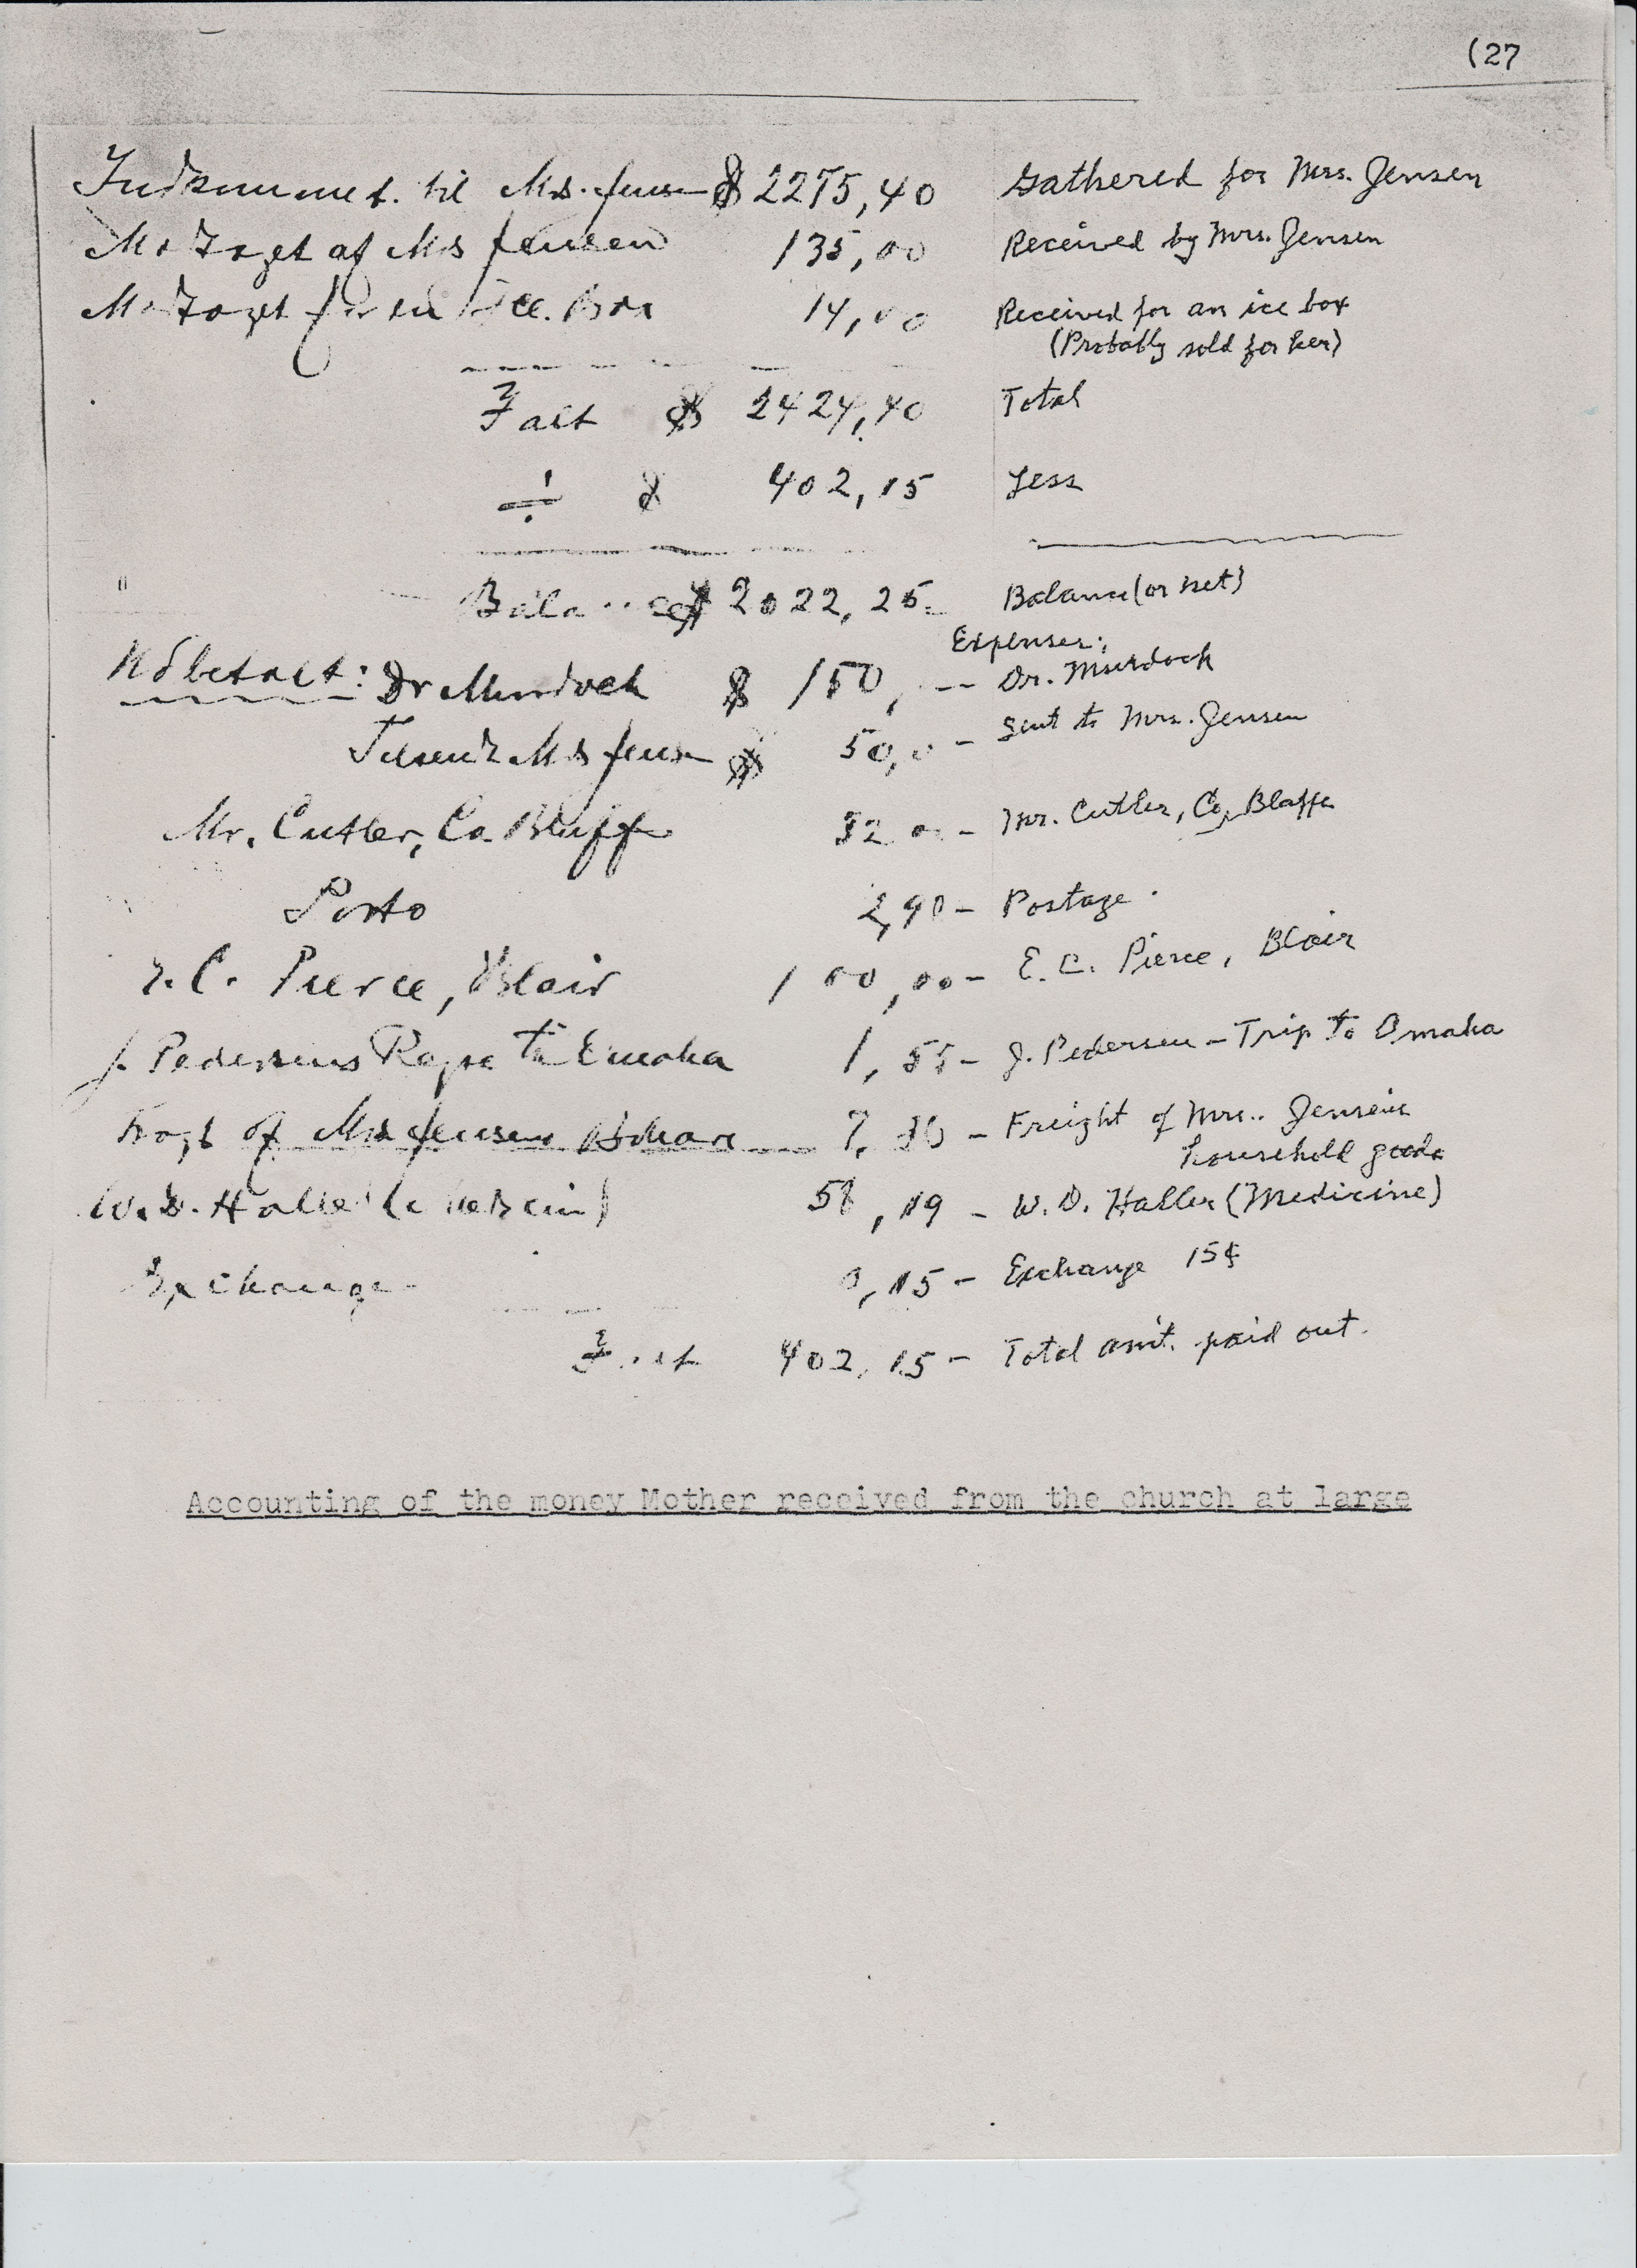 (27
Indkommet. til Mrs. Jensen $ 2275,40 Gathered for Mrs. Jensen
Modtaget af Mrs Jensen 135,00 Received by Mrs. Jensen
Modtaget for en Ice. Box 14,00 Received for an ice box
(Probably sold for her)
Ialt $ 2424,40 Total
÷ $ 402,15 Less
Balance $ 2022,25 Balance (or net)
Expenses:
Udbetalt: Dr Murdoch $ 150, -- Dr. Murdock
Tilsendt Mrs Jensen $ 50,0 - Sent to Mrs. Jensen
Mr. Cutler, Co. Bluffs 32 00 - Mr. Cutler, Co, Bluffs
Porto 2,90 - Postage
E. C. Pierce, Blair 100,00 - E. C. Pierce, Blair
J. Pedersens Rejse til Omaha 1,55 - J. Pedersen - Trip to Omaha
Fragt af Mrs Jensens 7, - Freight of Mrs.. Jensens
household goods
W. D. Haller (Medicin) 58, 19 - W. D. Haller (Medicine)
Exchange 0,15 - Exchange 15¢
Ialt 402,15 - Total am't. paid out.
Accounting of the money Mother received from the church at large